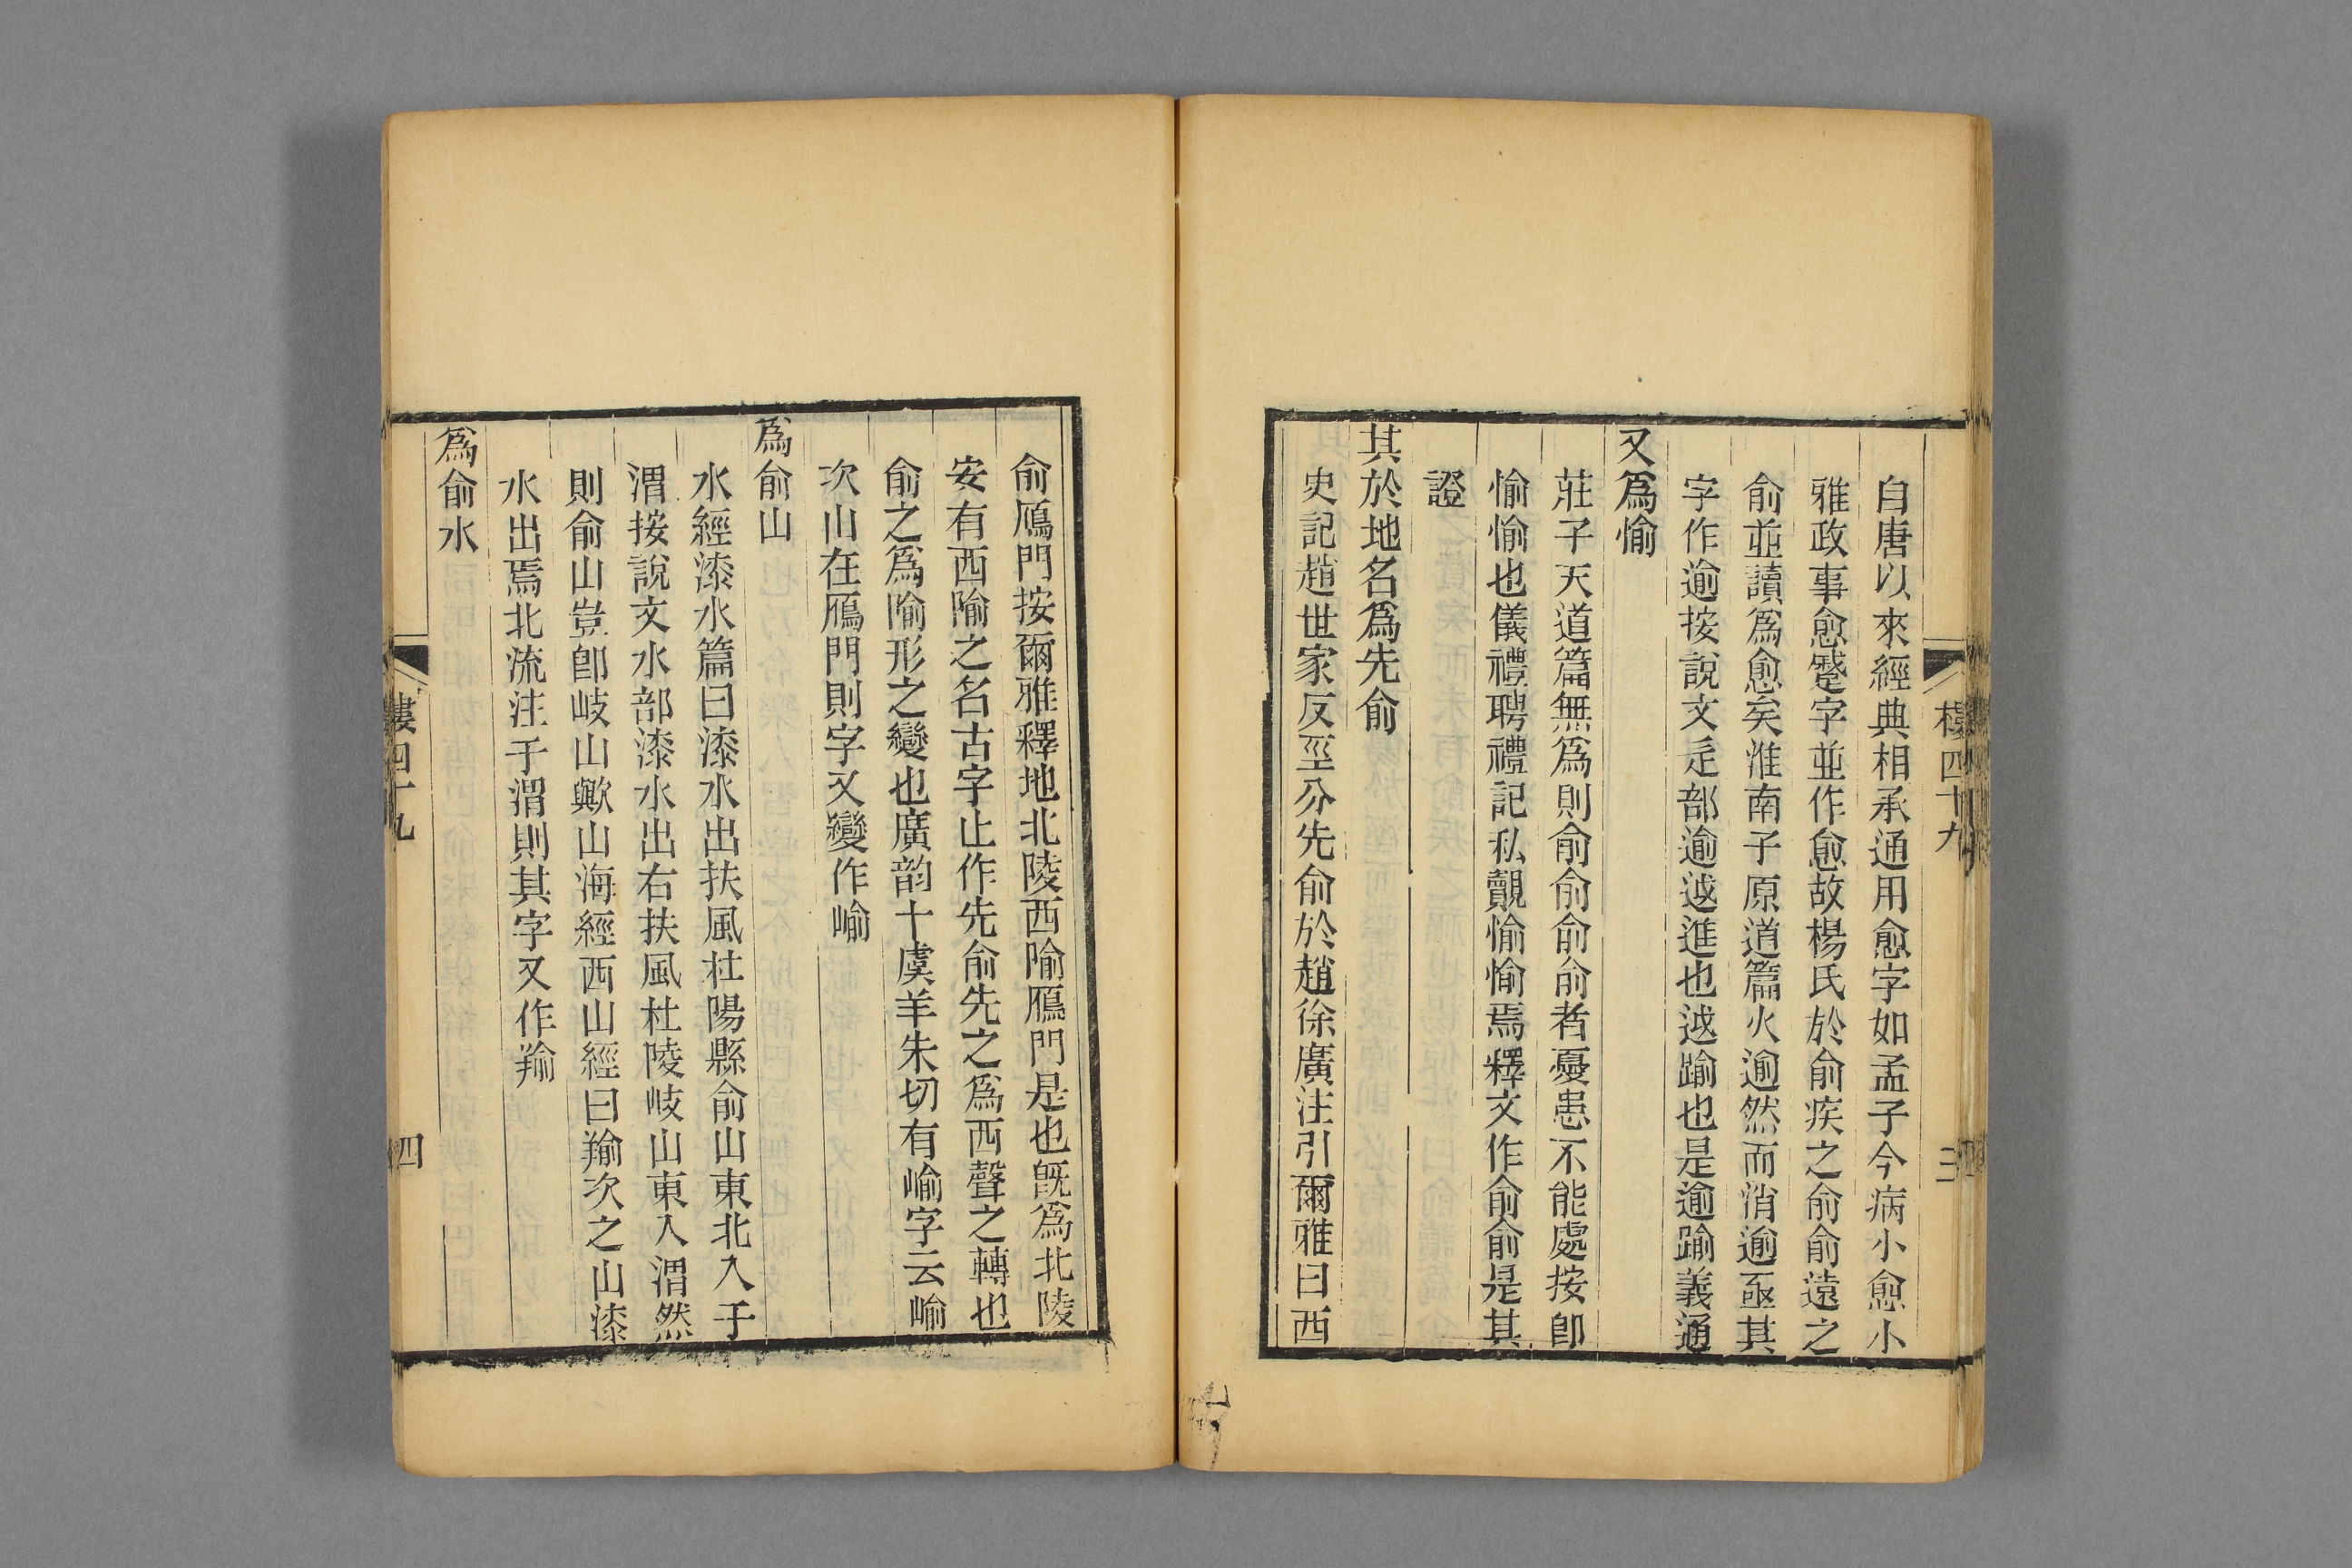 樓四十九
三
自唐以來經典相承通用愈字如孟子今病小愈小
雅政事愈蹙字並作愈故楊氏於俞疾之俞俞遠之
俞並讀爲愈矣淮南子原道篇火逾然而消逾亟其
字作逾按說文辵部逾逑進也逑踰也是逾踰義通
又爲愉
莊子天道篇無爲則俞俞俞俞者憂患不能處按卽
愉愉也儀禮聘禮記私覿愉愉焉釋文作俞俞是其
證
其於地名爲先俞
史記趙世家反巠分先俞於趙徐廣注引爾雅曰西
俞鴈門按爾雅釋地北陵西隃鴈門是也旣爲北陵
安有西隃之名古字止作先俞先之爲西聲之轉也
俞之爲隃形之變也廣韵十虞羊朱切有崳字云崳
次山在鴈門則字又變作崳
爲俞山
水經漆水篇曰漆水出扶風杜陽縣俞山東北入于
渭按說文水部漆水出右扶風杜陵岐山東入渭然
則俞山豈卽岐山歟山海經西山經曰羭次之山漆
水出焉北流注于渭則其字又作羭
爲俞水
樓四十九
四